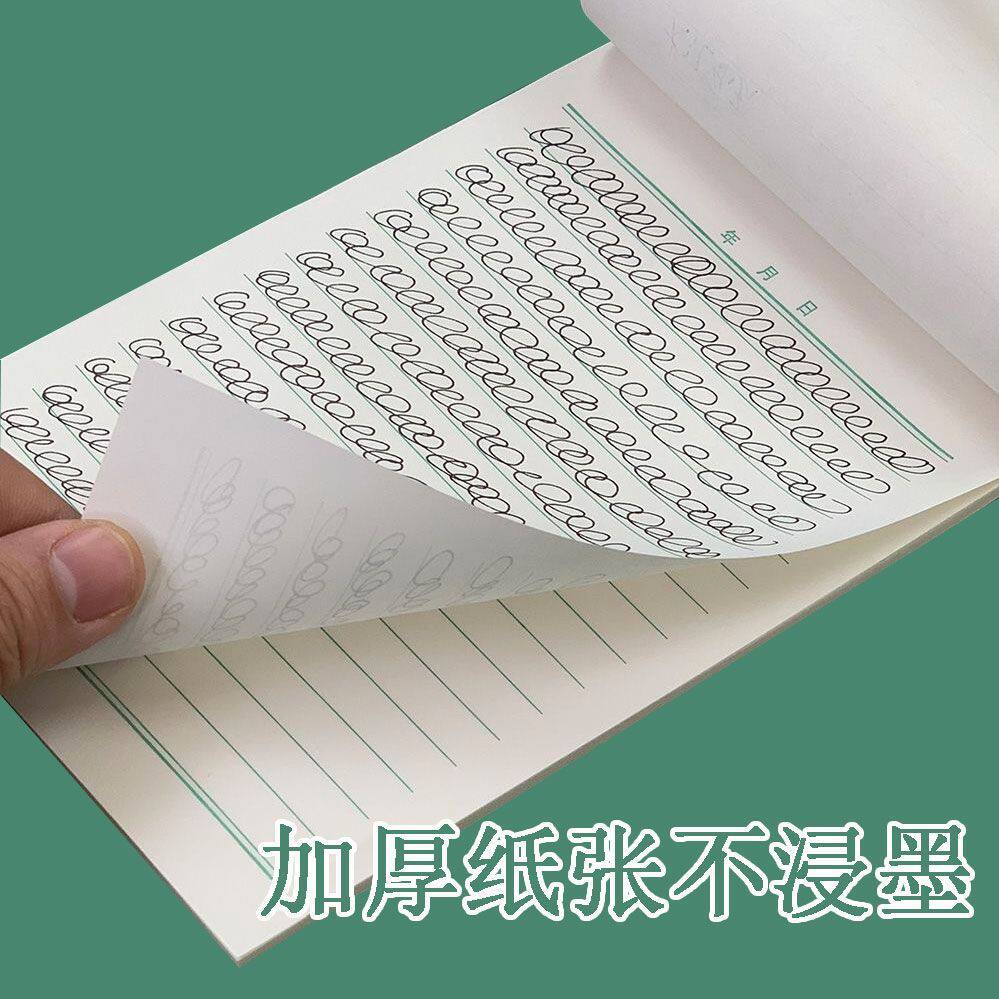 年 月 日
加厚纸张不浸墨